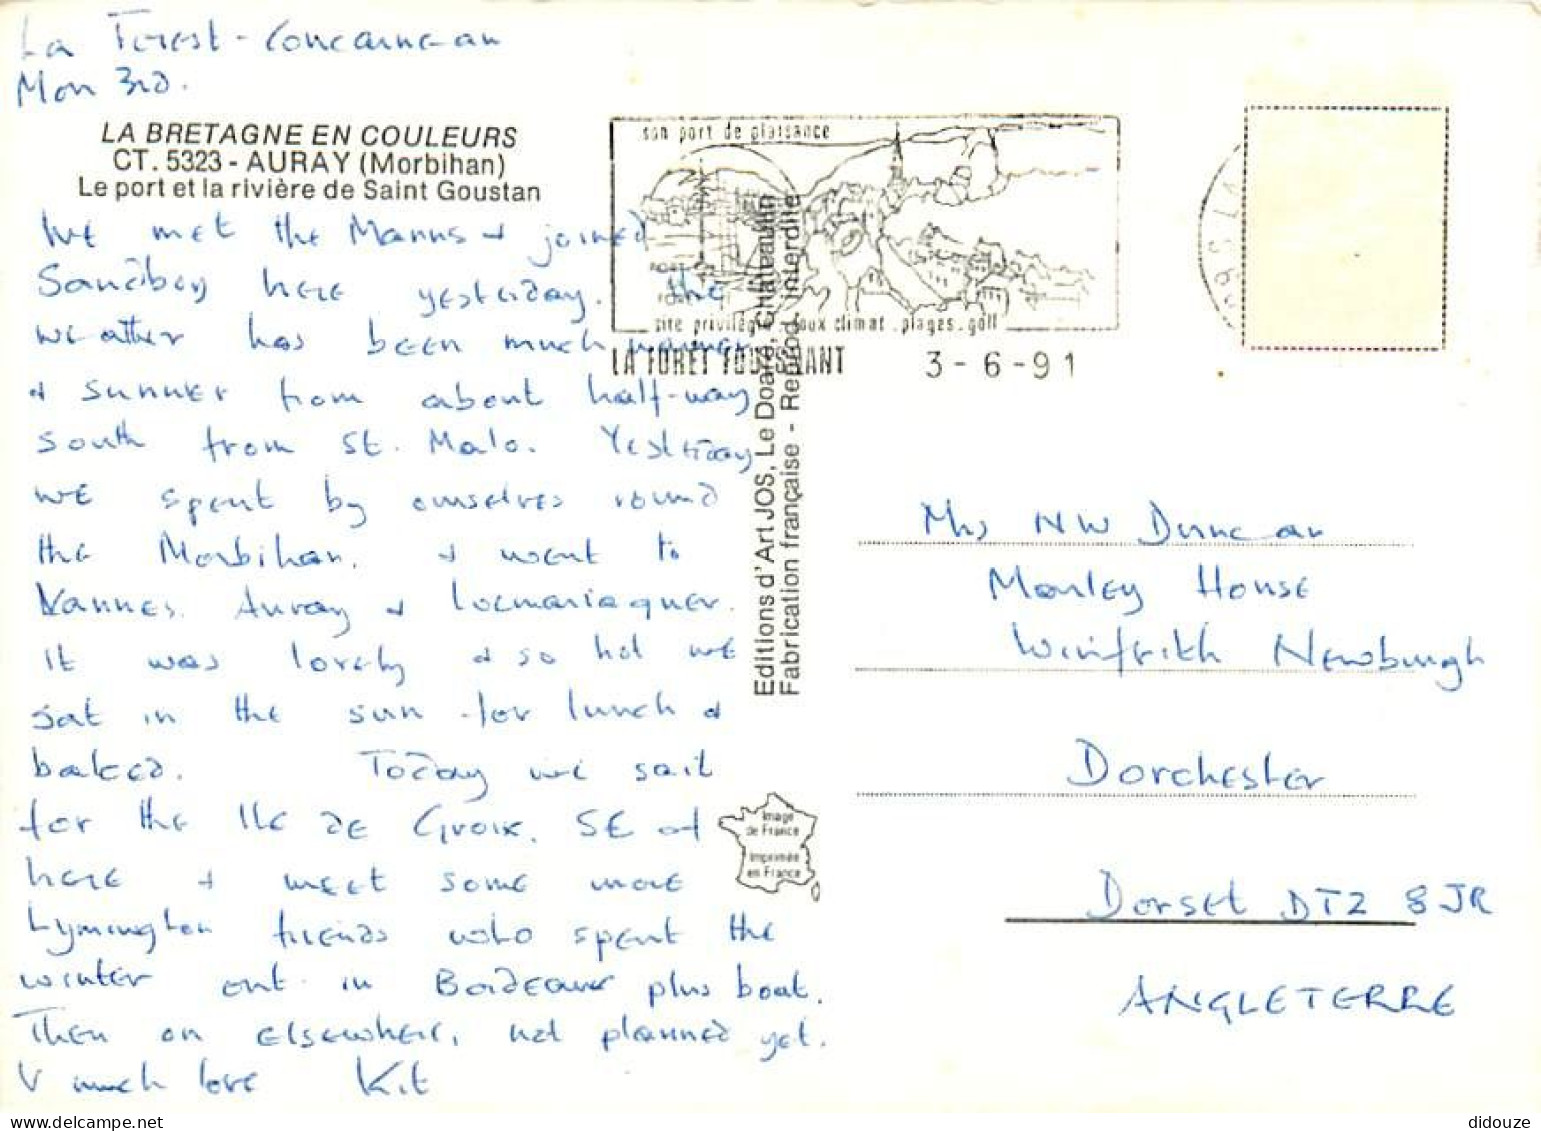 La Forest - Concarneau
Mon 3rd.
LA BRETAGNE EN COULEURS
CT. 5323 - AURAY (Morbihan)
Le port et la rivière de Saint Goustan
We met the Manns & joined
Sandboy here yesterday. the
weather has been much warmer
& sunnier from about half-way
south from St. Malo. Yesterday
we spent by ourselves round
the Morbihan. & went to
Vannes. Auray & Locmariaquer.
it was lovely & so hot we
sat in the sun for lunch &
baked. Today we sail
for the Ile de Groix. SE of
here & meet some more
Lymington friends who spent the
winter out in Bordeaux plus boat.
Then on elsewhere, not planned yet.
V much love Kit
son port de plaisance
PORT
site privilégié - doux climat . plages . golf
LA FORET FOUESNANT
3-6-91
Editions d'Art JOS, Le Doaré, Châteaulin
Fabrication française - Reprod. interdite
Image
de France
Imprimée
en France
Mrs NW Duncan
Marley House
Winfrith Newburgh
Dorchester
Dorset DT2 8JR
ANGLETERRE
didouze